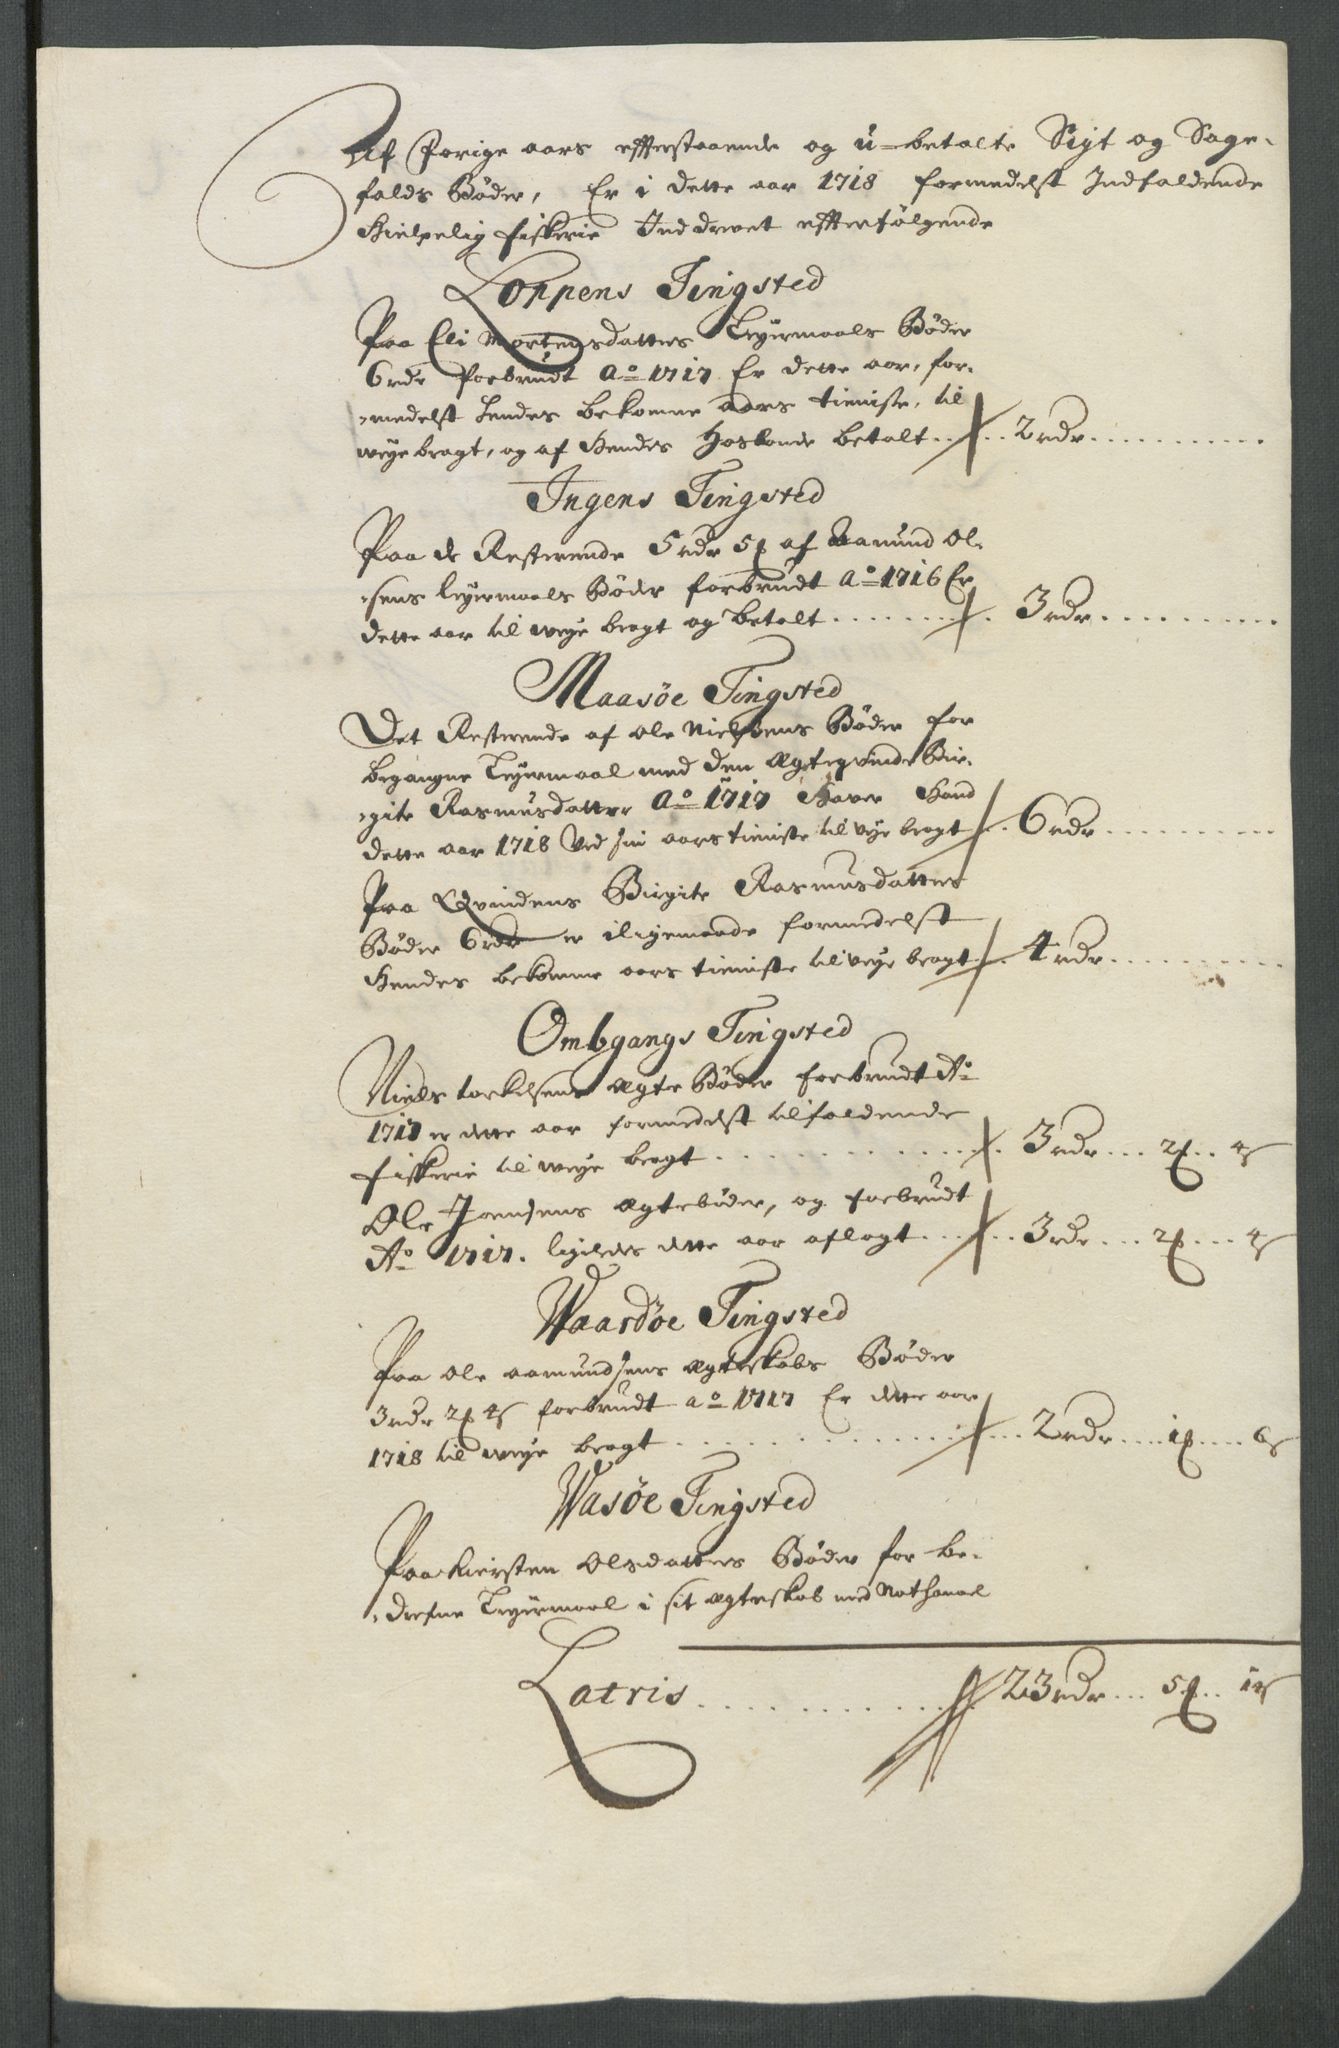 Af Forige aars efterstaaende og u-betalte Sigt og Sage-
falds Bøder, Er i dette aar 1718 formedelst Indfaldende
Hielpelig fiskerie Inddrevet efterfølgende
Loppens Tingsted
Paa Eli Mortensdatters Leyermaals Bøder
6 rdr forbrudt Ao 1717 Er dette aar, for-
-medelst hendes bekomne aars tieniste, til
weye bragt, og af Hendes Hosbonde betalt .. 2 rdr
Ingens Tingsted
Paa de Resterende 5 rdr 5 ß af Aamund Ol-
-sens leyermaals Bøder forbrudt Ao 1716 Er
dette aar til weye bragt og betalt ....... 3 rdr
Maasøe Tingsted
Det Resterende af Ole Nielsens Bøder for
begangne Leyermaal med den Ægteqvinde Bir-
-gite Rasmusdatter Ao 1717 Haver Hand
dette aar 1718 Ved sin aars tieniste til veye bragt .. 6 rdr
Paa Qvindens Birgite Rasmusdatters
Bøder 6 rdr er iligemaade formedelst
Hendes bekomne aars tieniste til veye bragt .. 4 rdr
Ombgangs Tingsted
Niels torkelsens Ægte Bøder forbrudt Ao
1717 er dette aar formedelst tilfaldende
fiskerie til weye bragt ....... 3 rdr ... 2 ß .. 4 s
Ole Joensens Ægtebøder, og forbrudt
Ao 1717. ligeledes dette aar aflagt ... 3 rdr ... 2 ß ... 4 s
Waardøe Tingsted
Paa Ole Aamundsens Ægteskabs Bøder
3 rdr 2 ß 4 s forbrudt ao 1717 Er dette aar
1718 til weye bragt ....... 2 rdr .... 1 ß .... 6 s
Wasøe Tingsted
Paa Kiersten Olsdatters Bøder for be-
-drefne Leyermaal i sit Ægteskab med Nathanael
Latris ....... 23 rdr ... 5 ß .. 14 s